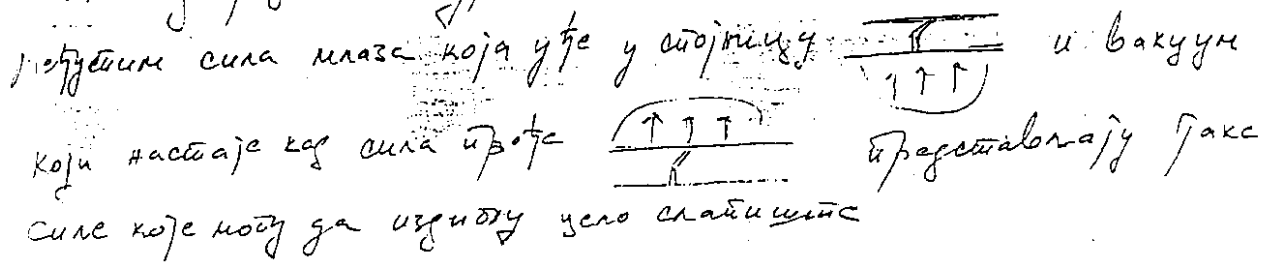 међутим сила млаза која уђе у спојницу и вакуум
који настаје кад сила прође представљају јаке
силе које могу да издигну цело слапиште